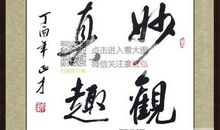 妙觀
真趣
丁酉年 正才
点击进入看大图
微信关注拿红包